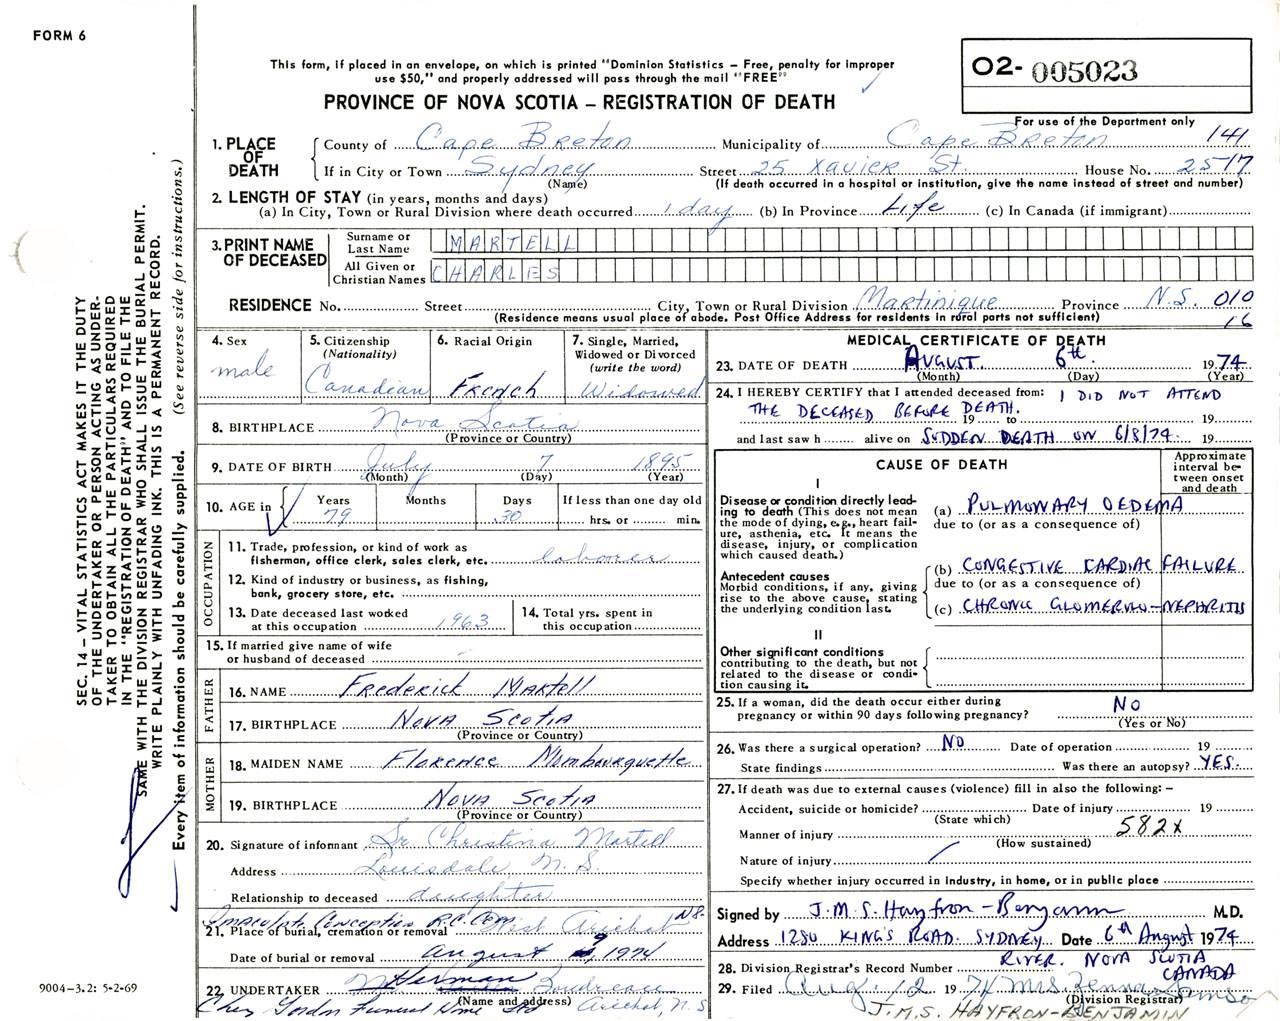 FORM 6
This form, if placed in an envelope, on which is printed "Dominion Statistics – Free, penalty for improper
use $50," and properly addressed will pass through the mail "FREE"
PROVINCE OF NOVA SCOTIA – REGISTRATION OF DEATH
O2- 005023
For use of the Department only
141
1. PLACE OF DEATH
County of Cape Breton Municipality of Cape Breton
If in City or Town Sydney Street 25 Xavier St. House No. 25/7
(Name) (If death occurred in a hospital or institution, give the name instead of street and number)
2. LENGTH OF STAY (in years, months and days)
(a) In City, Town or Rural Division where death occurred 1 day (b) In Province Life (c) In Canada (if immigrant)
3. PRINT NAME OF DECEASED
Surname or Last Name MARTELL
All Given or Christian Names CHARLES
RESIDENCE No. Street City, Town or Rural Division Martinique Province N.S. 010
(Residence means usual place of abode. Post Office Address for residents in rural parts not sufficient) 16
4. Sex male
5. Citizenship (Nationality) Canadian
6. Racial Origin French
7. Single, Married, Widowed or Divorced (write the word) Widowed
8. BIRTHPLACE Nova Scotia
(Province or Country)
9. DATE OF BIRTH July 7 1895
(Month) (Day) (Year)
10. AGE in Years 79 Months Days 30 If less than one day old hrs. or min.
OCCUPATION
11. Trade, profession, or kind of work as
fisherman, office clerk, sales clerk, etc. laborer
12. Kind of industry or business, as fishing,
bank, grocery store, etc.
13. Date deceased last worked
at this occupation 1963
14. Total yrs. spent in
this occupation
15. If married give name of wife
or husband of deceased
FATHER
16. NAME Frederick Martell
17. BIRTHPLACE Nova Scotia
(Province or Country)
MOTHER
18. MAIDEN NAME Florence Mombourquette
19. BIRTHPLACE Nova Scotia
(Province or Country)
20. Signature of informant Sr. Christina Martell
Address Louisdale, N.S.
Relationship to deceased daughter
Immaculate Conception R.C. Cem West Arichat NS.
21. Place of burial, cremation or removal
Date of burial or removal August 9, 1974
22. UNDERTAKER Herman Boudreau
(Name and address)
Chez Gordon Funeral Home Ltd Arichat, N.S
MEDICAL CERTIFICATE OF DEATH
23. DATE OF DEATH AUGUST. 6th. 1974
(Month) (Day) (Year)
24. I HEREBY CERTIFY that I attended deceased from: I DID NOT ATTEND
THE DECEASED BEFORE DEATH.
19 to 19
and last saw h alive on SUDDEN DEATH ON 6/8/74. 19
CAUSE OF DEATH
Approximate interval between onset and death
I
Disease or condition directly leading to death (This does not mean the mode of dying, e.g., heart failure, asthenia, etc. It means the disease, injury, or complication which caused death.)
(a) PULMONARY OEDEMA
due to (or as a consequence of)
Antecedent causes
Morbid conditions, if any, giving rise to the above cause, stating the underlying condition last.
(b) CONGESTIVE CARDIAC FAILURE
due to (or as a consequence of)
(c) CHRONIC GLOMERULO-NEPHRITIS
II
Other significant conditions
contributing to the death, but not related to the disease or condition causing it.
25. If a woman, did the death occur either during
pregnancy or within 90 days following pregnancy? NO
(Yes or No)
26. Was there a surgical operation? NO Date of operation 19
State findings Was there an autopsy? YES.
27. If death was due to external causes (violence) fill in also the following: –
Accident, suicide or homicide? Date of injury 19
(State which)
Manner of injury 582x
(How sustained)
Nature of injury
Specify whether injury occurred in industry, in home, or in public place
Signed by J.M.S. Hayfron-Benjamin M.D.
Address 1280 KING'S ROAD. SYDNEY Date 6th August 1974
RIVER. NOVA SCOTIA
CANADA
28. Division Registrar's Record Number
29. Filed Aug. 12 1974 Mrs.
(Division Registrar)
J.M.S. HAYFRON-BENJAMIN
SEC. 14 – VITAL STATISTICS ACT MAKES IT THE DUTY
OF THE UNDERTAKER OR PERSON ACTING AS UNDER-
TAKER TO OBTAIN ALL THE PARTICULARS REQUIRED
IN THE "REGISTRATION OF DEATH" AND TO FILE THE
SAME WITH THE DIVISION REGISTRAR WHO SHALL ISSUE THE BURIAL PERMIT.
WRITE PLAINLY WITH UNFADING INK. THIS IS A PERMANENT RECORD.
Every item of information should be carefully supplied. (See reverse side for instructions.)
9004-3.2: 5-2-69